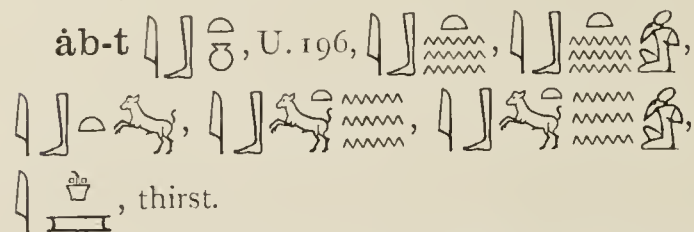 ȧb-t 𓇋𓃀𓏏, U. 196, 𓇋𓃀𓏏𓈗, 𓇋𓃀𓏏𓈗𓀁,
𓇋𓃀𓏏𓃙, 𓇋𓃀𓃙𓏏𓈗, 𓇋𓃀𓃙𓏏𓈗𓀁,
𓇋, thirst.